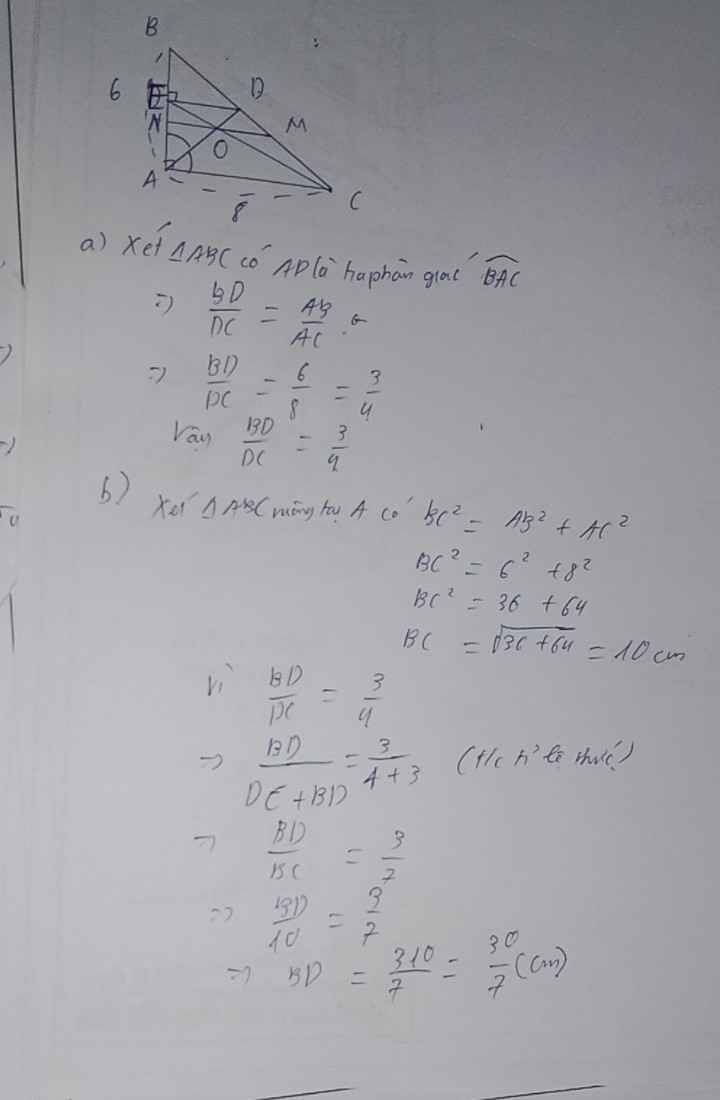 B
6 E D
N M
O
A
8 C
a) Xét △ABC có AD là tia phân giác \widehat{BAC}
=> \frac{BD}{DC} = \frac{AB}{AC}
=> \frac{BD}{DC} = \frac{6}{8} = \frac{3}{4}
Vậy \frac{BD}{DC} = \frac{3}{4}
b) Xét △ABC vuông tại A có BC² = AB² + AC²
BC² = 6² + 8²
BC² = 36 + 64
BC = \sqrt{36 + 64} = 10 cm
Vì \frac{BD}{DC} = \frac{3}{4}
=> \frac{BD}{DC + BD} = \frac{3}{4 + 3} (t/c tỉ lệ thức)
=> \frac{BD}{BC} = \frac{3}{7}
=> \frac{BD}{10} = \frac{3}{7}
=> BD = \frac{3.10}{7} = \frac{30}{7} (cm)